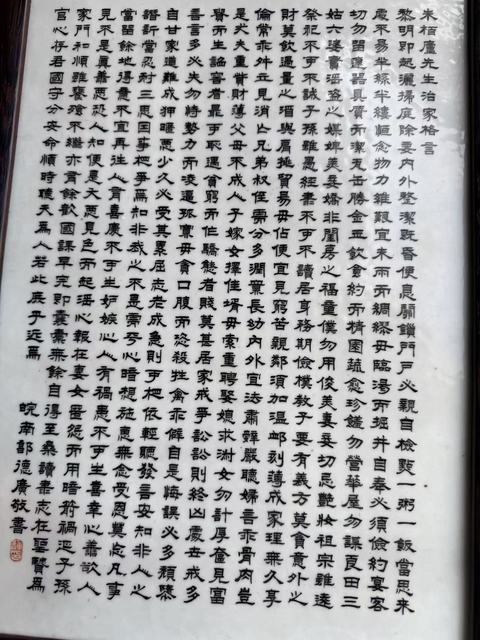 朱栢廬先生治家格言
黎明即起灑掃庭除要內外整潔既昏便息關鎖門戶必親自檢點一粥一飯當思來
處不易半絲半縷恆念物力維艱宜未雨而綢繆毋臨渴而掘井自奉必須儉約宴客
切勿留連器具質而潔瓦缶勝金玉飲食約而精園蔬愈珍饈勿營華屋勿謀良田三
姑六婆實淫盜之媒婢美妾嬌非閨房之福童僕勿用俊美妻妾切忌艷妝祖宗雖遠
祭祀不可不誠子孫雖愚經書不可不讀居身務期儉樸教子要有義方莫貪意外之
財莫飲過量之酒與肩挑貿易毋佔便宜見窮苦親鄰須加溫卹刻薄成家理無久享
倫常乖舛立見消亡兄弟叔侄需分多潤寡長幼內外宜法肅辭嚴聽婦言乖骨肉豈
是丈夫重貲財薄父母不成人子嫁女擇佳壻毋索重聘娶媳求淑女勿計厚奩見富
貴而生諂容者最可恥遇貧窮而作驕態者賤莫甚居家戒爭訟訟則終凶處世戒多
言言多必失勿恃勢力而凌逼孤寡毋貪口腹而恣殺牲禽乖僻自是悔誤必多頹惰
自甘家道難成狎暱惡少久必受其累屈志老成急則可相依輕聽發言安知非人之
譖訴當忍耐三思因事相爭焉知非我之不是需平心暗想施惠無念受恩莫忘凡事
當留餘地得意不宜再往人有喜慶不可生妒嫉心人有禍患不可生喜幸心善欲人
見不是真善惡恐人知便是大惡見色而起淫心報在妻女匿怨而用暗箭禍延子孫
家門和順雖饔飧不繼亦有餘歡國課早完即囊橐無餘自得至樂讀書志在聖賢為
官心存君國守分安命順時聽天為人若此庶乎近焉
皖南 德廣敬書